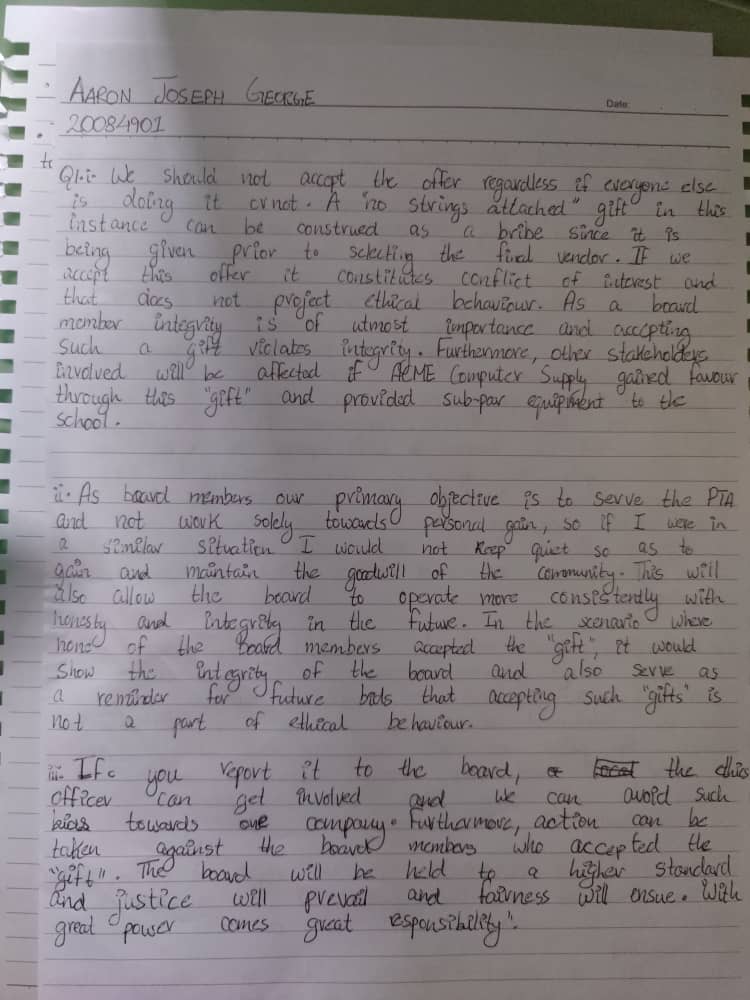 AARON JOSEPH GEORGE
Date:
20084901
Q1.i. We should not accept the offer regardless if everyone else
is doing it or not. A "no strings attached" gift in this
instance can be construed as a bribe since it is
being given prior to selecting the final vendor. If we
accept this offer it constitutes conflict of interest and
that does not project ethical behaviour. As a board
member integrity is of utmost importance and accepting
such a gift violates integrity. Furthermore, other stakeholders
involved will be affected if ACME Computer Supply gained favour
through this "gift" and provided sub-par equipment to the
school.
ii. As board members our primary objective is to serve the PTA
and not work solely towards personal gain, so if I were in
a similar situation I would not keep quiet so as to
gain and maintain the goodwill of the community. This will
also allow the board to operate more consistently with
honesty and integrity in the future. In the scenario where
none of the Board members accepted the "gift", it would
show the integrity of the board and also serve as
a reminder for future bids that accepting such "gifts" is
not a part of ethical behaviour.
iii. If you report it to the board, the ethics
officer can get involved and we can avoid such
bias towards one company. Furthermore, action can be
taken against the board members who accepted the
"gift". The board will be held to a higher standard
and justice will prevail and fairness will ensue. With
great power comes great responsibility".